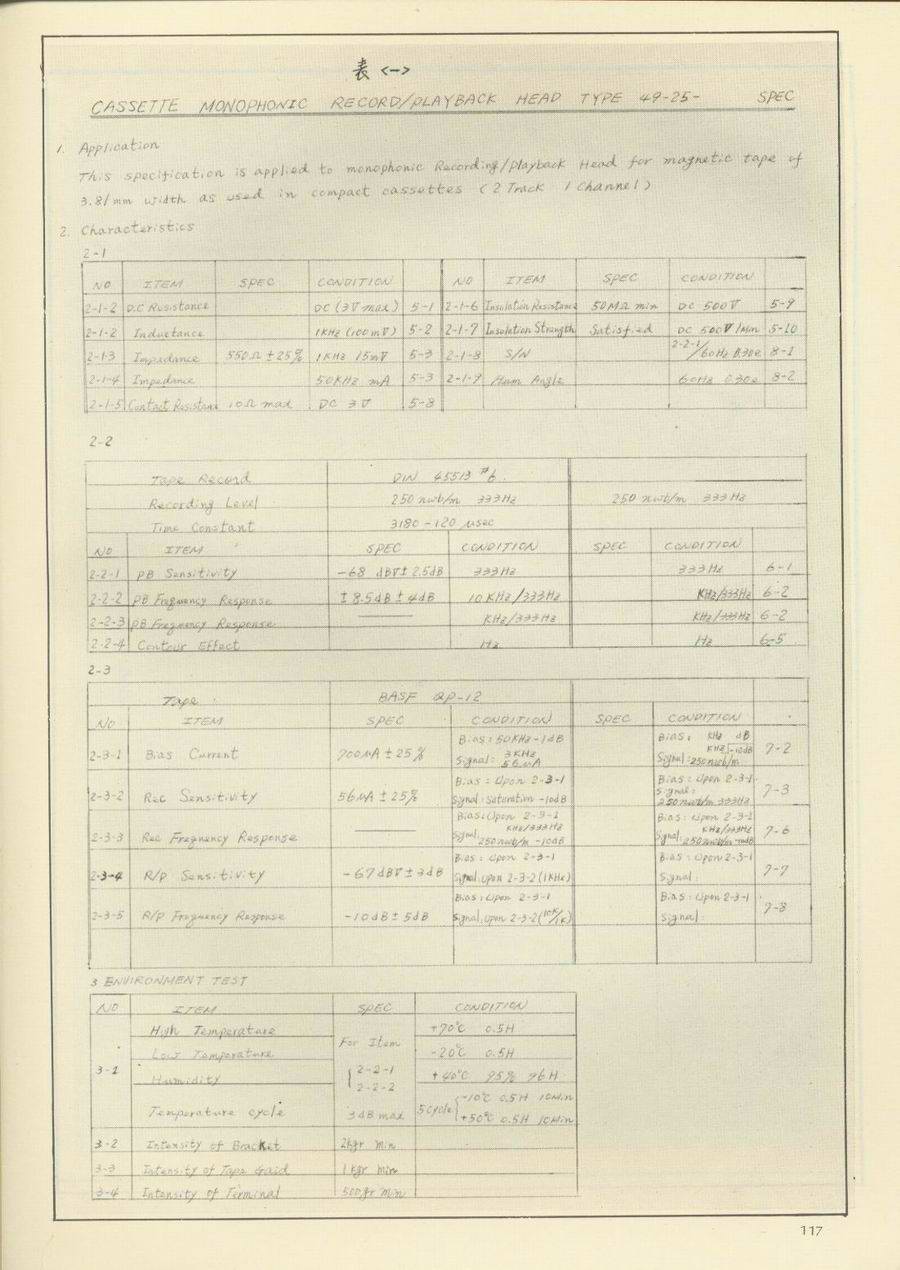 表 <一>
CASSETTE MONOPHONIC RECORD/PLAYBACK HEAD TYPE 49-25- SPEC
1. Application
This specification is applied to monophonic Recording/playback Head for magnetic tape of
3.81mm width as used in compact cassettes (2 Track 1 Channel)
2. Characteristics
2-1
NO ITEM SPEC CONDITION NO ITEM SPEC CONDITION
2-1-2 D.C Resistance DC (3V max) 5-1 2-1-6 Insolation Resistance 50MΩ min DC 500V 5-9
2-1-2 Inductance 1KHz (100mV) 5-2 2-1-7 Insolation Strength Satisfied DC 500V 1Min 5-10
2-1-3 Impedance 550Ω ±25% 1KHz 15mV 5-3 2-1-8 S/N 2-2-1/60Hz 0.30e 8-1
2-1-4 Impedance 50KHz mA 5-3 2-1-9 Hum Angle 60Hz 0.30e 8-2
2-1-5 Contact Resistance 10Ω max DC 3V 5-8
2-2
Tape Record DIN 45513 #6.
Recording Level 250 nwb/m 333Hz 250 nwb/m 333Hz
Time Constant 3180-120 μsec
NO ITEM SPEC CONDITION SPEC CONDITION
2-2-1 PB Sensitivity -68 dBV±2.5dB 333Hz 333Hz 6-1
2-2-2 PB Freguency Response ±8.5dB±4dB 10KHz/333Hz KHz/333Hz 6-2
2-2-3 PB Freguency Response KHz/333Hz KHz/333Hz 6-2
2-2-4 Contour Effect Hz Hz 6-5
2-3
Tape BASF QP-12
NO ITEM SPEC CONDITION SPEC CONDITION
2-3-1 Bias Current 700μA ±25% Bias: 50KHz-1dB Signal: 3KHz 56μA Bias: KHz dB Signal: KHz -10dB 250nwb/m 7-2
2-3-2 Rec Sensitivity 56μA ±25% Bias: Upon 2-3-1 Signal: Saturation -10dB Bias: Upon 2-3-1. Signal: 250nwb/m 333Hz 7-3
2-3-3 Rec Freguency Response Bias: Upon 2-3-1 Signal: KHz/333Hz 250nwb/m -10dB Bias: Upon 2-3-1 Signal: KHz/333Hz 250nwb/m -10dB 7-6
2-3-4 R/P Sensitivity -67dBV±3dB Bias: Upon 2-3-1 Signal: Upon 2-3-2 (1KHz) Bias: Upon 2-3-1 Signal: 7-7
2-3-5 R/P Freguency Response -10dB±5dB Bias: Upon 2-3-1 Signal: Upon 2-3-2 (10K/1K) Bias: Upon 2-3-1 Signal: 7-8
3 ENVIRONMENT TEST
NO ITEM SPEC CONDITION
High Temperature +70°C 0.5H
Low Temperature For Item -20°C 0.5H
3-1 Humidity 2-2-1 2-2-2 +40°C 95% 96H
Temperature cycle 3dB max 5 cycle -10°C 0.5H 10Min +50°C 0.5H 10Min
3-2 Intensity of Bracket 2kgr min
3-3 Intensity of Tape Gaid 1kgr min
3-4 Intensity of Terminal 500gr min
117